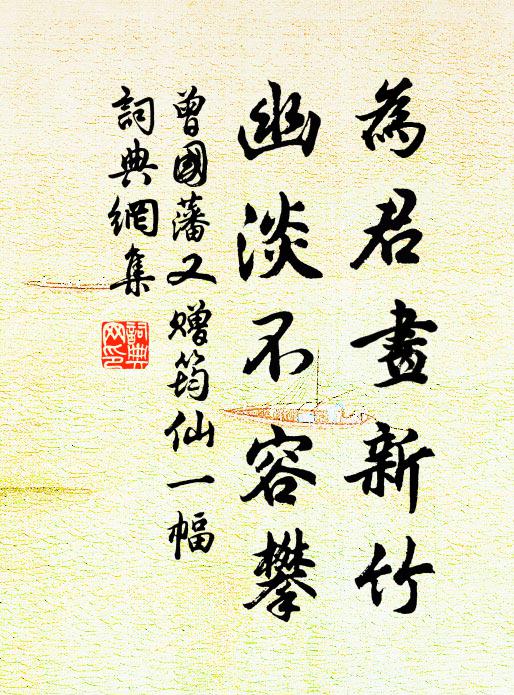 為君畫新竹
幽淡不容攀
曾國藩又贈筠仙一幅
詞典網集
詞典
網印